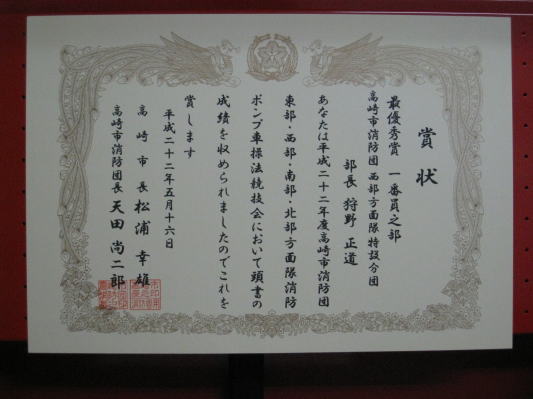 賞状
最優秀賞 一番員之部
高崎市消防団 西部方面隊特設分団
部長 狩野 正道
あなたは平成二十二年度高崎市消防団
東部・西部・南部・北部方面隊消防
ポンプ車操法競技会において頭書の
成績を収められましたのでこれを
賞します
平成二十二年五月十六日
高崎市長 松浦 幸雄
高崎市消防団長 天田 尚二郎